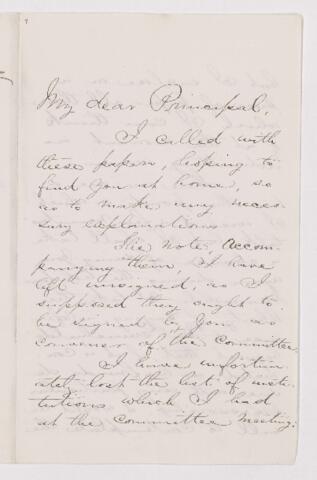 My dear Principal,
I called with
these papers, hoping to
find you at home, so
as to make any neces-
sary explanations.
The note accom-
panying them, I have
left unsigned, as I
supposed they ought to
be signed by you as
convener of the Committee.
I have unfortun-
atel lost the list of insti-
tutions which I had
at the Committee Meeting: